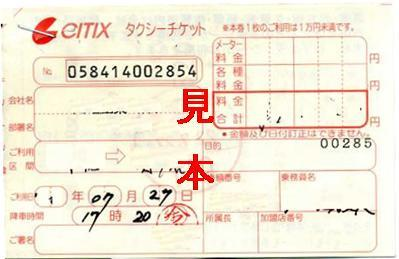 eitix タクシーチケット
※本券1枚のご利用は1万円未満です。
No. 058414002854
メーター料金 円
各種料金 円
料金合計 円
※金額及び日付訂正はできません。
会社名
部署名
見本
ご利用区間
目的 00285
乗務員名
ご利用日 年 07 月 27 日
降車時間 17 時 20 分
所属長
加盟店番号
ご署名